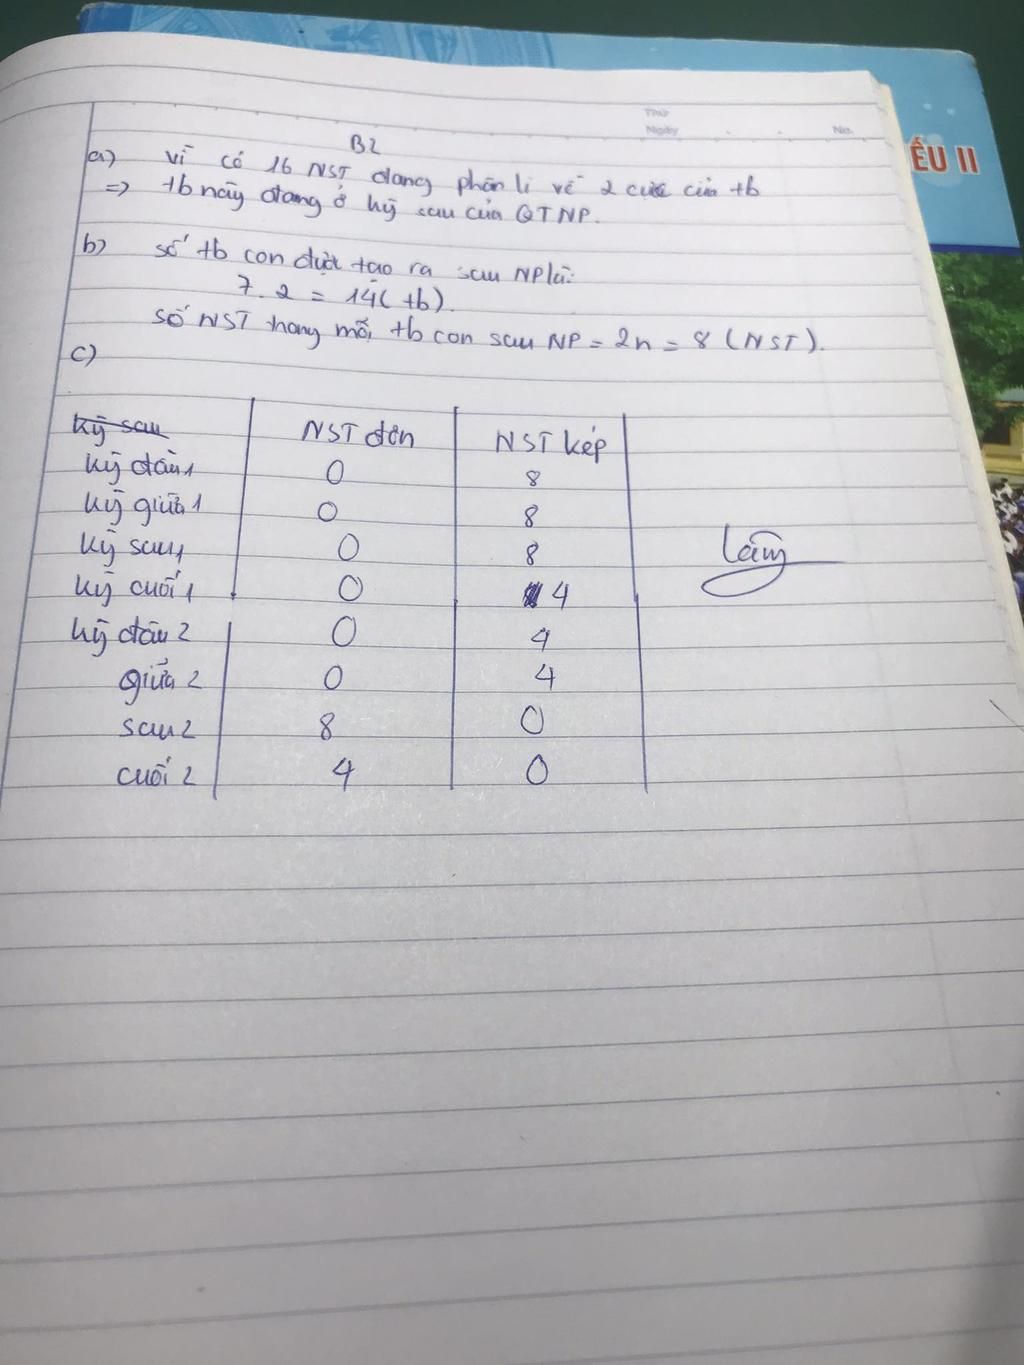 Thứ
Ngày . . No.
ẾU II
B2
a) Vì có 16 NST đang phân li về 2 cực của tb
=> tb này đang ở kỳ sau của QTNP.
b) số tb con được tạo ra sau NP là:
7.2 = 14 (tb).
số NST trong mỗi tb con sau NP = 2n = 8 (NST).
c)
Kỳ sau NST đơn NST kép
Kỳ đầu 1 0 8
Kỳ giữa 1 0 8
Kỳ sau 1 0 8
Kỳ cuối 1 0 4
Kỳ đầu 2 0 4
giữa 2 0 4
sau 2 8 0
cuối 2 4 0